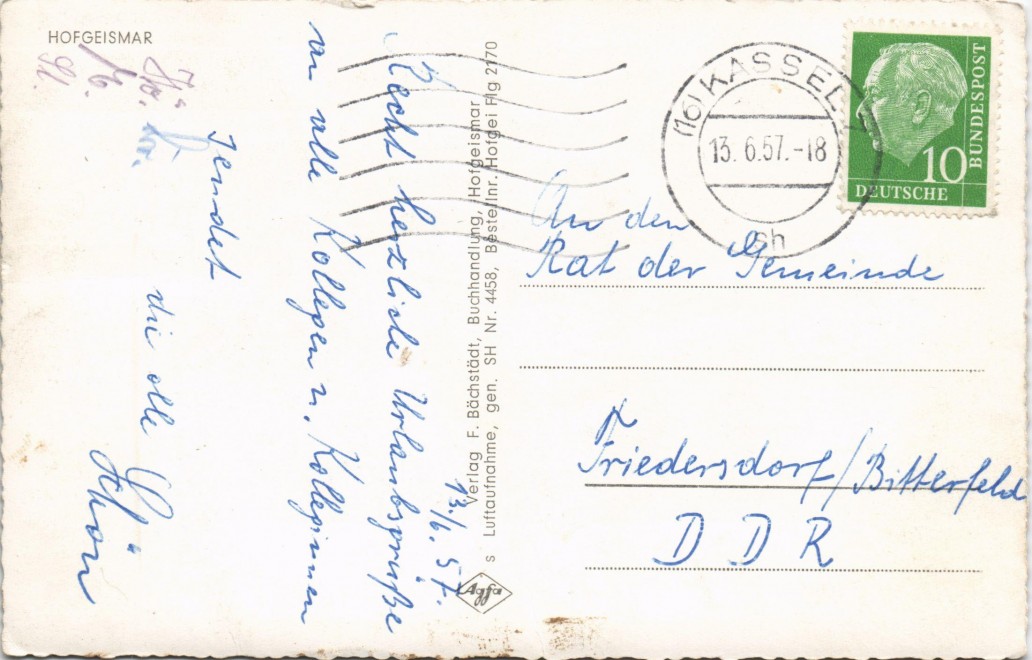 HOFGEISMAR
13./6. 57.
Recht herzliche Urlaubsgrüße
an alle Kollegen u. Kolleginnen
sendet
die olle
Verlag F. Bächstädt, Buchhandlung, Hofgeismar
s Luftaufnahme, gen. SH Nr. 4458, Bestellnr. Hofdei Flg 2170
Agfa
(16) KASSEL
13.6.57.-18
sh
10
DEUTSCHE
BUNDESPOST
An den
Rat der Gemeinde
Friedersdorf/Bitterfeld
DDR